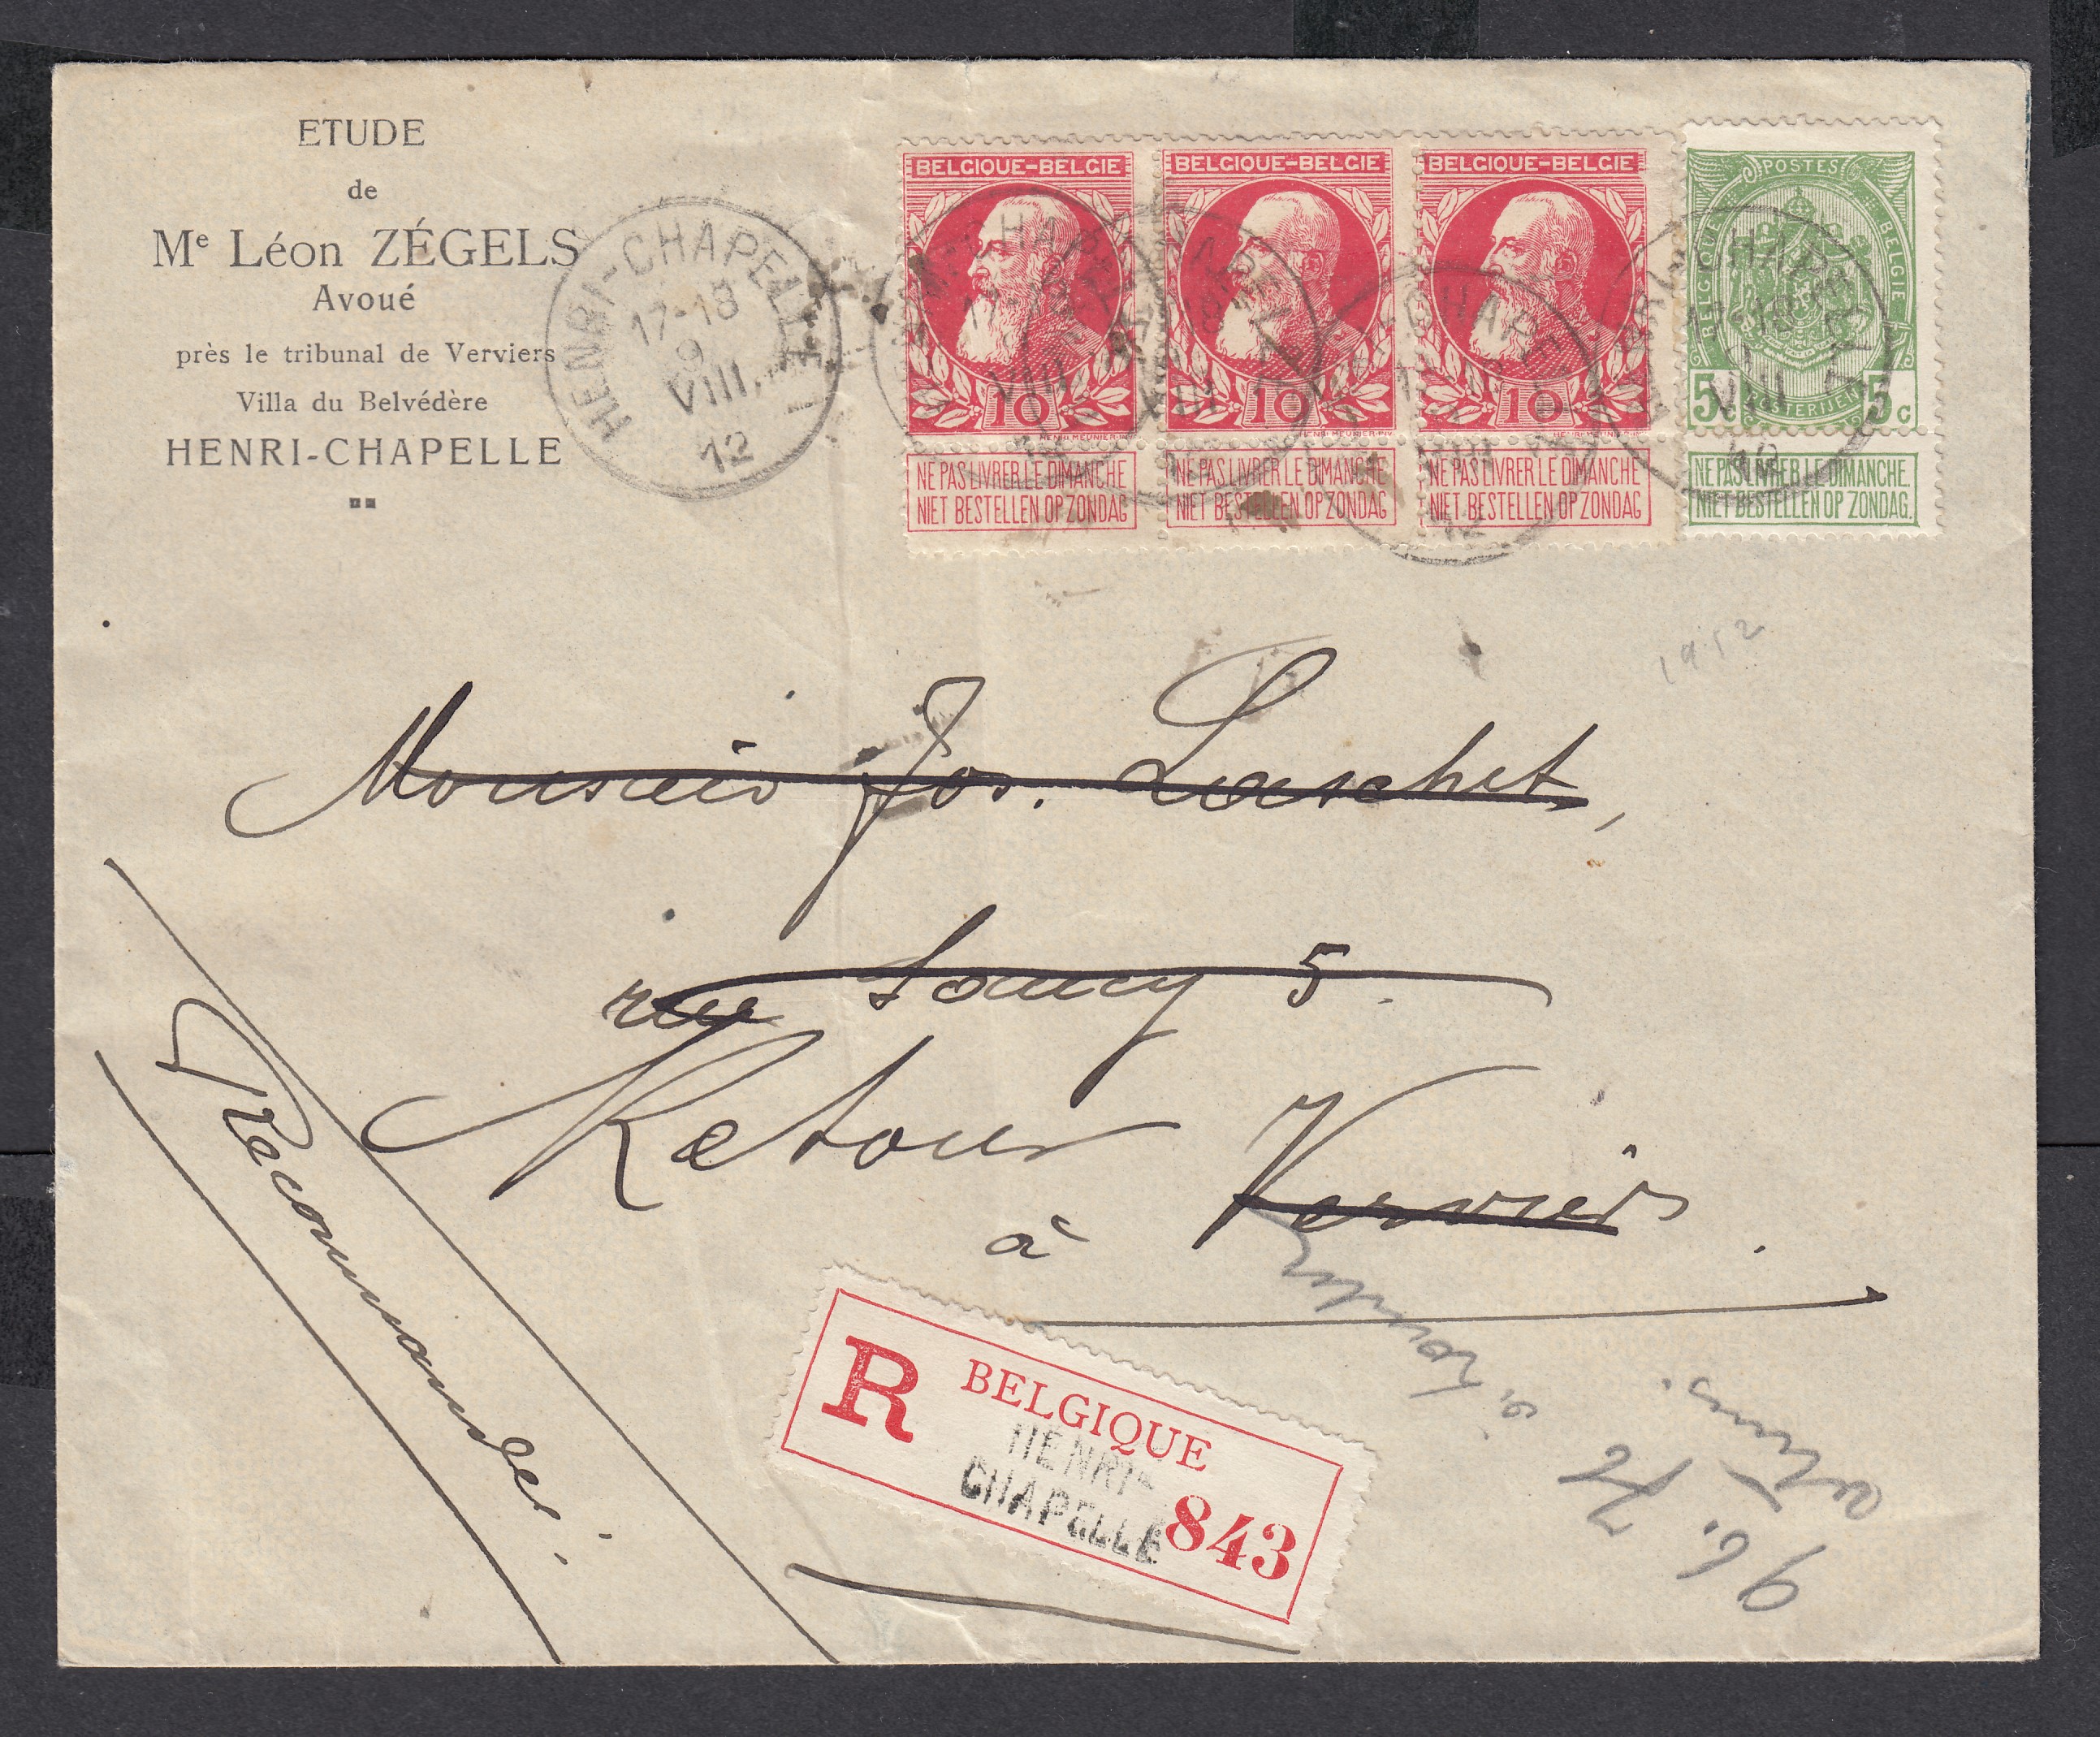 ETUDE
de
Me Léon ZÉGELS
Avoué
près le tribunal de Verviers
Villa du Belvédère
HENRI-CHAPELLE
HENRI-CHAPELLE
17-18
9
VIII
12
BELGIQUE-BELGIE
10
HENRI MEUNIER-INV
NE PAS LIVRER LE DIMANCHE
NIET BESTELLEN OP ZONDAG
BELGIQUE-BELGIE
10
HENRI MEUNIER-INV
NE PAS LIVRER LE DIMANCHE
NIET BESTELLEN OP ZONDAG
BELGIQUE-BELGIE
10
HENRI MEUNIER-INV
NE PAS LIVRER LE DIMANCHE
NIET BESTELLEN OP ZONDAG
POSTES
BELGIQUE
BELGIE
POSTERIJEN
5 5c
NE PAS LIVRER LE DIMANCHE.
NIET BESTELLEN OP ZONDAG.
1912
Monsieur Jos. Laschet,
rue Saucy 5.
Retour
à Verviers.
Recommandée.
R BELGIQUE
HENRI-
CHAPELLE
843